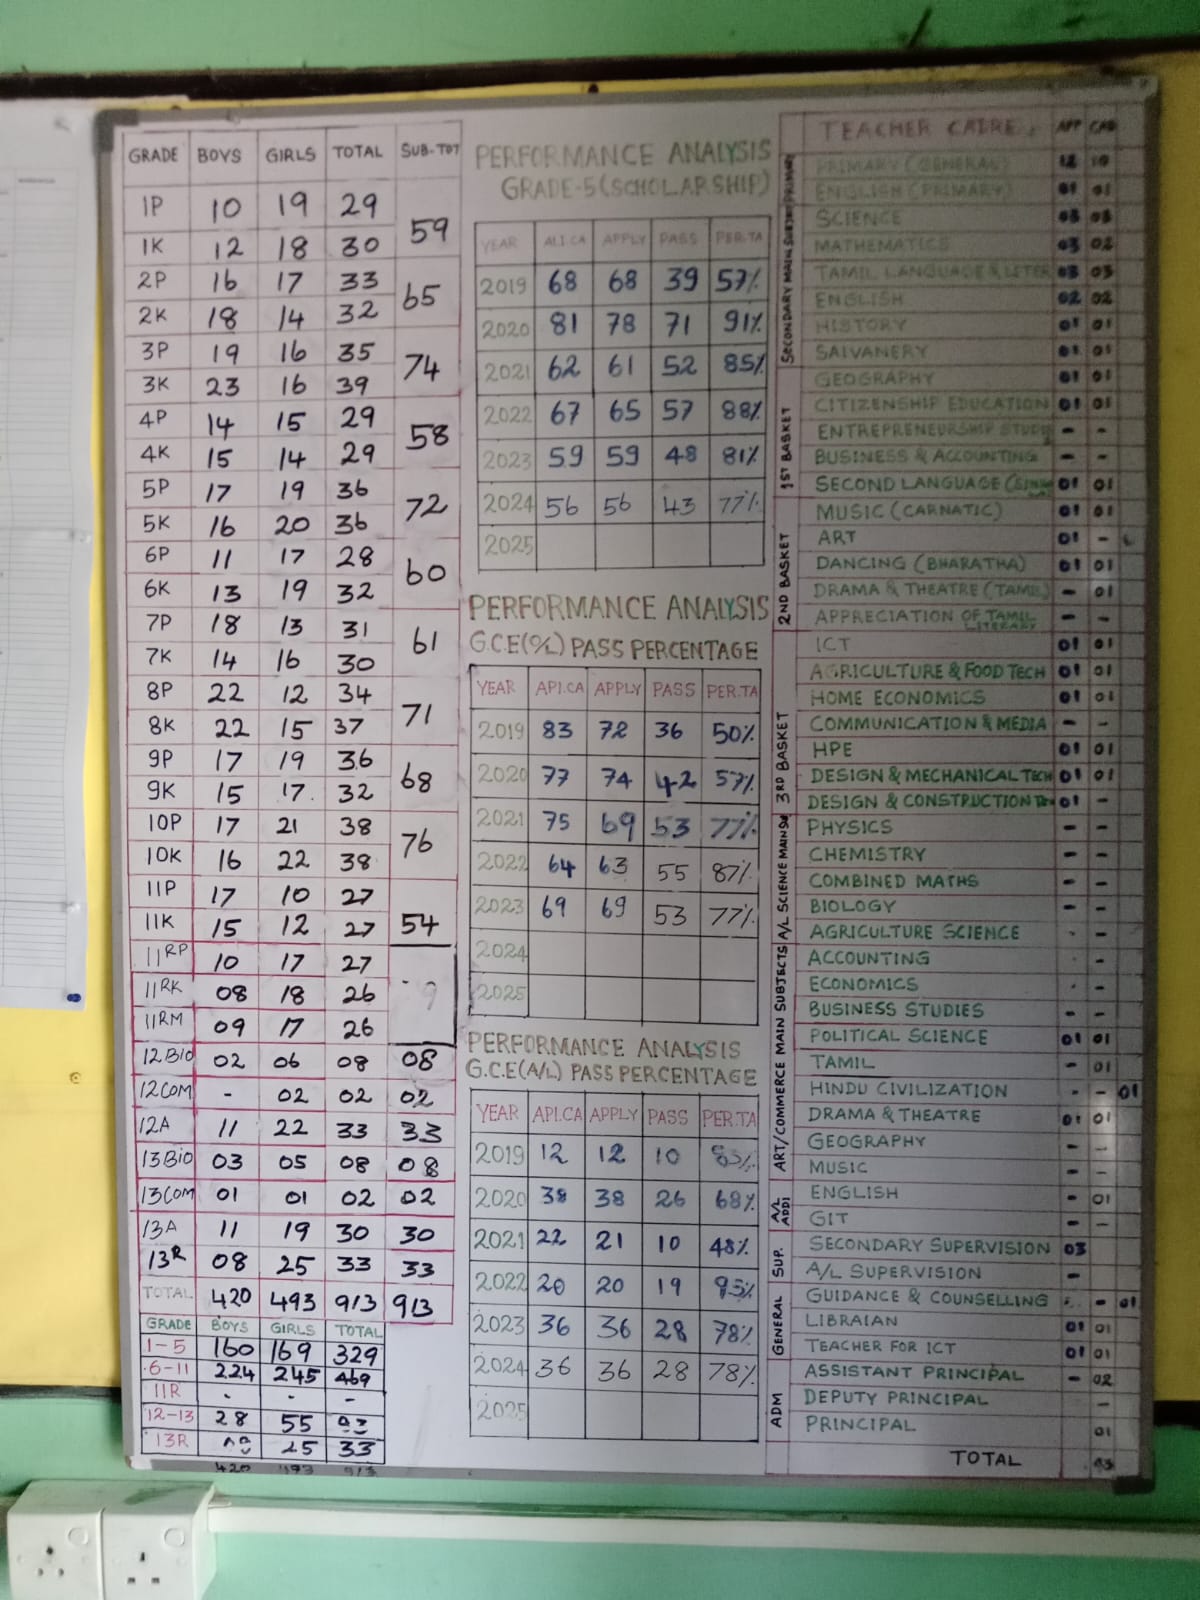 GRADE BOYS GIRLS TOTAL SUB-TOT
1P 10 19 29
59
1K 12 18 30
2P 16 17 33
65
2K 18 14 32
3P 19 16 35
74
3K 23 16 39
4P 14 15 29
58
4K 15 14 29
5P 17 19 36
72
5K 16 20 36
6P 11 17 28
60
6K 13 19 32
7P 18 13 31
61
7K 14 16 30
8P 22 12 34
71
8K 22 15 37
9P 17 19 36
68
9K 15 17. 32
10P 17 21 38
76
10K 16 22 38
11P 17 10 27
11K 15 12 27 54
11RP 10 17 27
11RK 08 18 26
11RM 09 17 26
12Bio 02 06 08 08
12COM - 02 02 02
12A 11 22 33 33
13Bio 03 05 08 08
13COM 01 01 02 02
13A 11 19 30 30
13R 08 25 33 33
TOTAL 420 493 913 913
GRADE BOYS GIRLS TOTAL
1-5 160 169 329
6-11 224 245 469
11R - - -
12-13 28 55
13R 25 33
420 493 913
PERFORMANCE ANALYSIS
GRADE-5(SCHOLARSHIP)
YEAR ALI.CA APPLY PASS PER.TA
2019 68 68 39 57%
2020 81 78 71 91%
2021 62 61 52 85%
2022 67 65 57 88%
2023 59 59 48 81%
2024 56 56 43 77%
2025
PERFORMANCE ANALYSIS
G.C.E(O/L) PASS PERCENTAGE
YEAR API.CA APPLY PASS PER.TA
2019 83 72 36 50%
2020 77 74 42 57%
2021 75 69 53 77%
2022 64 63 55 87%
2023 69 69 53 77%
2024
2025
PERFORMANCE ANALYSIS
G.C.E(A/L) PASS PERCENTAGE
YEAR API.CA APPLY PASS PER.TA
2019 12 12 10
2020 38 38 26 68%
2021 22 21 10 48%
2022 20 20 19 95%
2023 36 36 28 78%
2024 36 36 28 78%
2025
TEACHER CADRE APP CAD
PRIMARY
PRIMARY (GENERAL) 12
ENGLISH (PRIMARY) 01 01
SECONDARY MAIN SUBJECT
SCIENCE 03 03
MATHEMATICS 03 02
TAMIL LANGUAGE & LITER 03 03
ENGLISH 02 02
HISTORY 01 01
SAIVANERY 01 01
1ST BASKET
GEOGRAPHY 01 01
CITIZENSHIP EDUCATION 01 01
ENTREPRENEURSHIP STUDI - -
BUSINESS & ACCOUNTING - -
SECOND LANGUAGE 01 01
2ND BASKET
MUSIC (CARNATIC) 01 01
ART 01 -
DANCING (BHARATHA) 01 01
DRAMA & THEATRE (TAMIL) - 01
APPRECIATION OF TAMIL LITERARY - -
3RD BASKET
ICT 01 01
AGRICULTURE & FOOD TECH 01 01
HOME ECONOMICS 01 01
COMMUNICATION & MEDIA - -
HPE 01 01
DESIGN & MECHANICAL TECH 01 01
DESIGN & CONSTRUCTION 01 -
A/L SCIENCE MAIN SUB
PHYSICS - -
CHEMISTRY - -
COMBINED MATHS - -
BIOLOGY - -
AGRICULTURE SCIENCE - -
ART/COMMERCE MAIN SUBJECTS
ACCOUNTING -
ECONOMICS - -
BUSINESS STUDIES - -
POLITICAL SCIENCE 01 01
TAMIL - 01
HINDU CIVILIZATION - - 01
DRAMA & THEATRE 01 01
GEOGRAPHY - -
MUSIC - -
A/L ADDI
ENGLISH - 01
GIT - -
SUP.
SECONDARY SUPERVISION 03
A/L SUPERVISION -
GENERAL
GUIDANCE & COUNSELLING - 01
LIBRAIAN 01 01
TEACHER FOR ICT 01 01
ADM
ASSISTANT PRINCIPAL - 02
DEPUTY PRINCIPAL -
PRINCIPAL 01
TOTAL